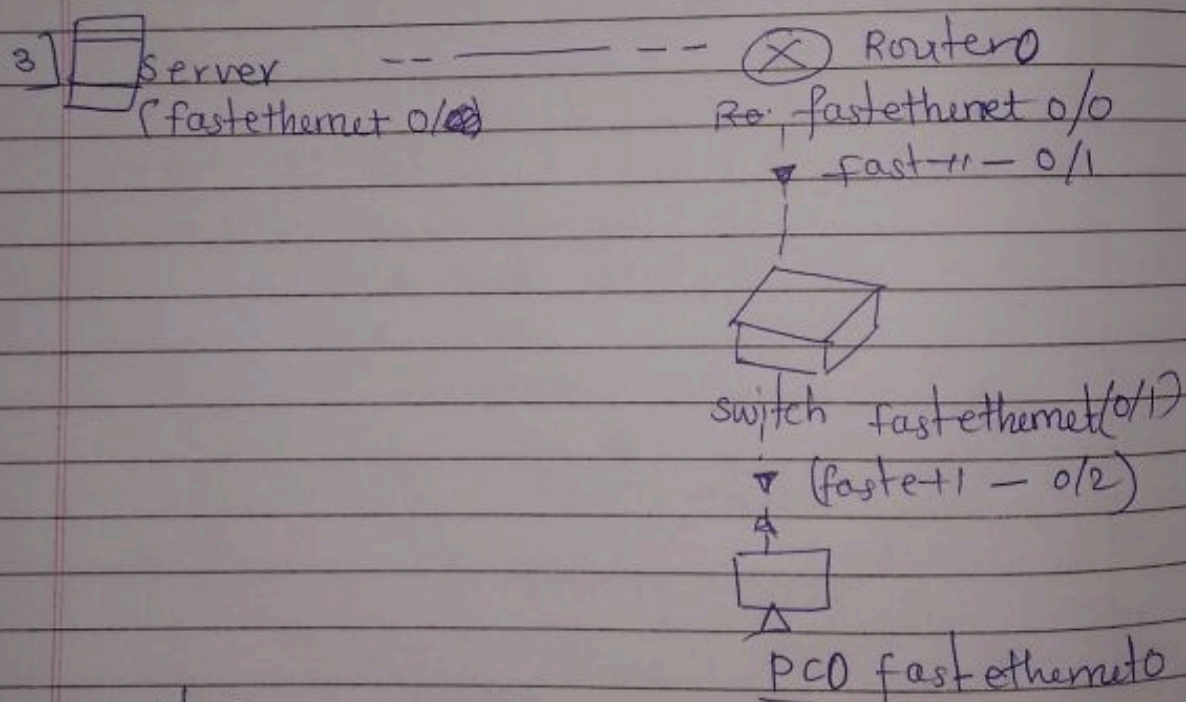 3]
Server
(fastethernet 0/
Router0
fastethenet 0/0
fast-11- 0/1
switch fastethernet(0/1)
(faste+1 - 0/2)
PC0 fastethernet0